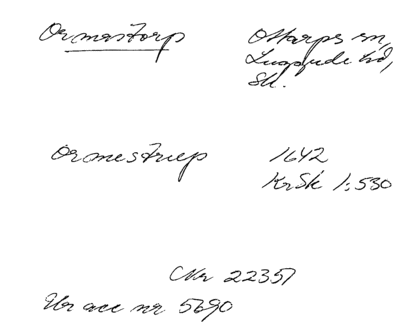 Ormastorp Ottarps sn,
Luggude hd,
Sk.
Ormestrup 1642
KrSk 1:530
Nr 22351
Ur acc nr 5690